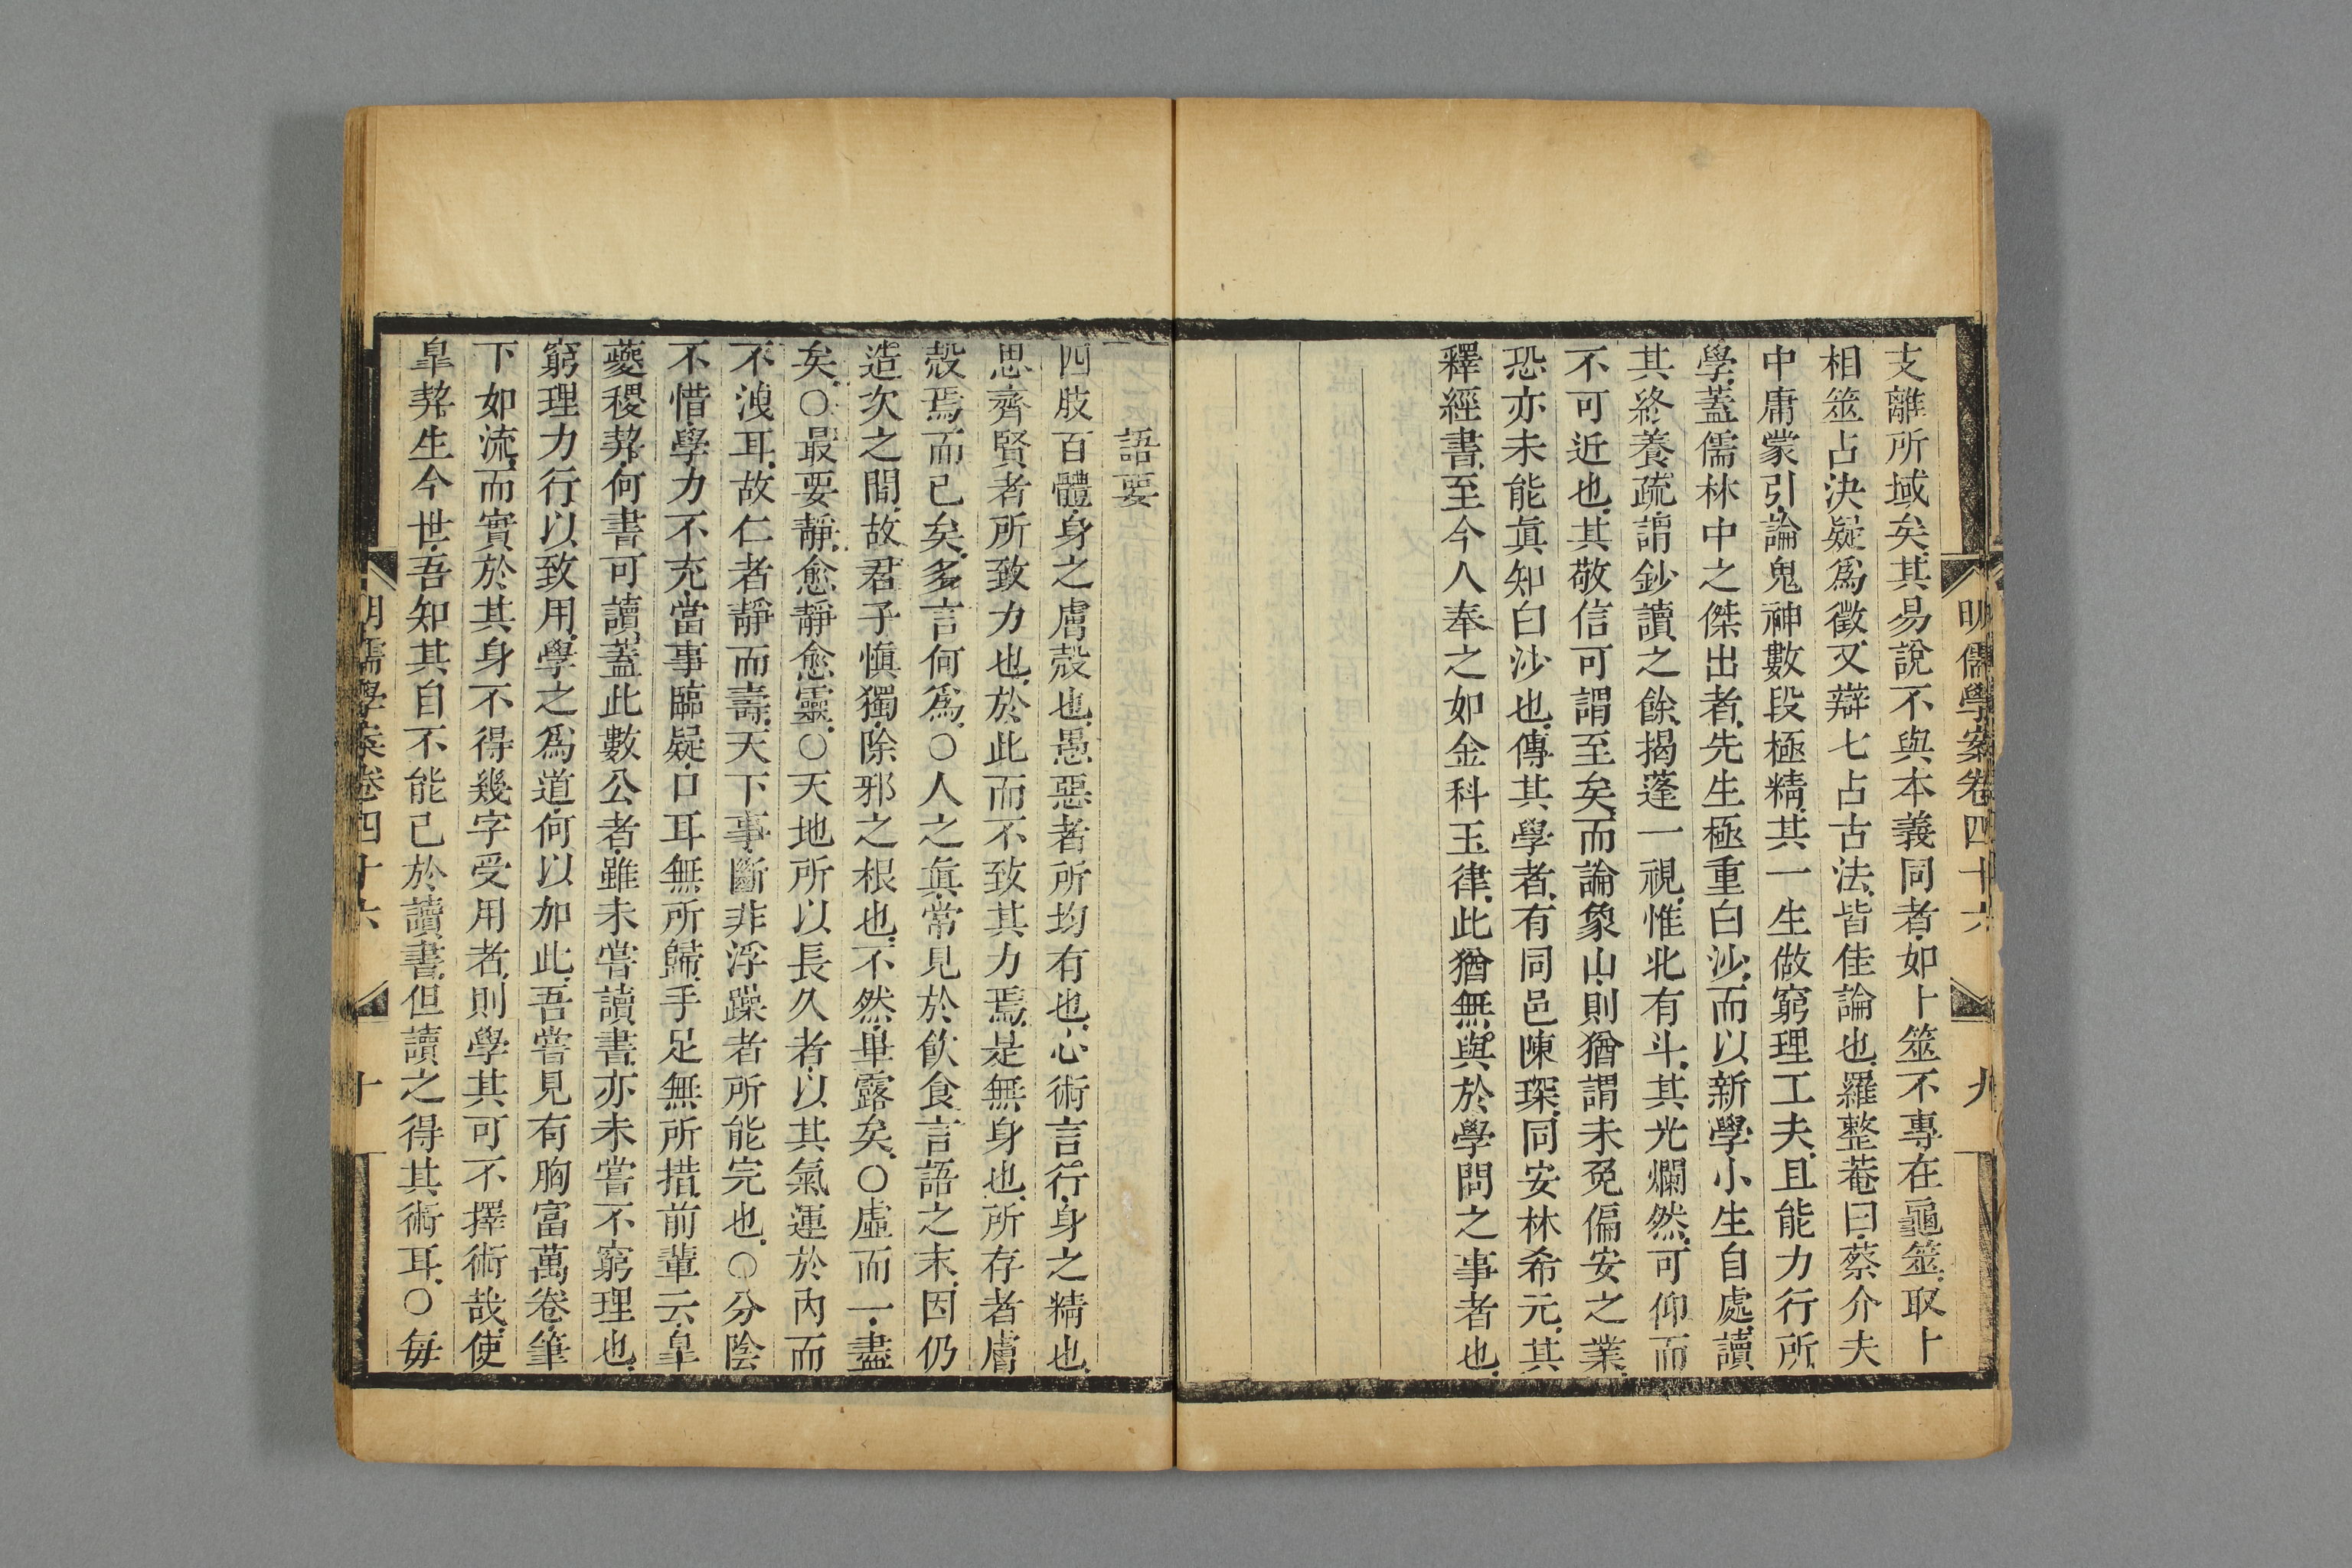 明儒學案卷四十六
九
支離所域矣其易說不與本義同者如卜筮不專在龜筮取卜
相筮占決疑爲徵又辯七占古法皆佳論也羅整菴曰蔡介夫
中庸蒙引論鬼神數段極精其一生做窮理工夫且能力行所
學蓋儒林中之傑出者先生極重白沙而以新學小生自處讀
其終養疏謂鈔讀之餘揭蓬一視惟北有斗其光爛然可仰而
不可近也其敬信可謂至矣而論象山則猶謂未免偏安之業
恐亦未能眞知白沙也傳其學者有同邑陳琛同安林希元其
釋經書至今人奉之如金科玉律此猶無與於學問之事者也
語要
四肢百體身之膚殼也愚惡者所均有也心術言行身之精也
思齊賢者所致力也於此而不致其力焉是無身也所存者膚
殼焉而已矣多言何爲○人之眞常見於飮食言語之末因仍
造次之間故君子愼獨除邪之根也不然畢露矣○虛而一盡
矣○最要靜愈靜愈靈○天地所以長久者以其氣運於內而
不洩耳故仁者靜而壽天下事斷非浮躁者所能完也○分陰
不惜學力不充當事臨疑口耳無所歸手足無所措前輩云臯
夔稷棊何書可讀蓋此數公者雖未嘗讀書亦未嘗不窮理也
窮理力行以致用學之爲道何以加此吾嘗見有胸富萬卷筆
下如流而實於其身不得幾字受用者則學其可不擇術哉使
臯棊生今世吾知其自不能已於讀書但讀之得其術耳○每
明儒學案卷四十六
十